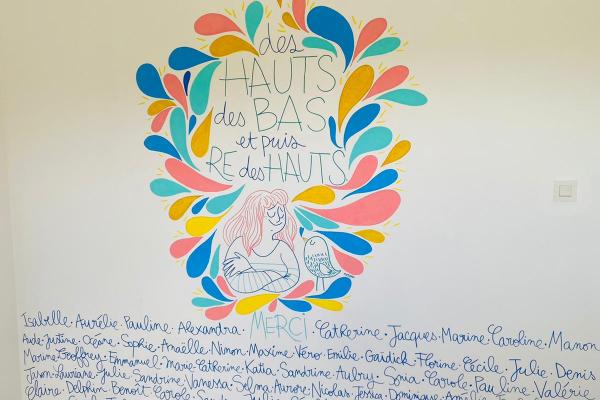 des
HAUTS
des BAS
et puis
RE des HAUTS
MERCI
Isabelle · Aurélie · Pauline · Alexandra · Catherine · Jacques · Marine · Caroline · Manon
Aude-Justine · Océane · Sophie · Anaëlle · Ninon · Maxime · Véro · Emilie · Gaïdick · Florine · Cécile · Julie · Denis
Marine · Geoffrey · Emmanuel · Marie-Catherine · Katia · Sandrine · Aubry · Sonia · Carole · Pauline · Valérie
Jason · Lauriane · Julie · Sandrine · Vanessa · Selma · Aurore · Nicolas · Jessica · Dominique
Claire · Delphine · Benoît · Carole